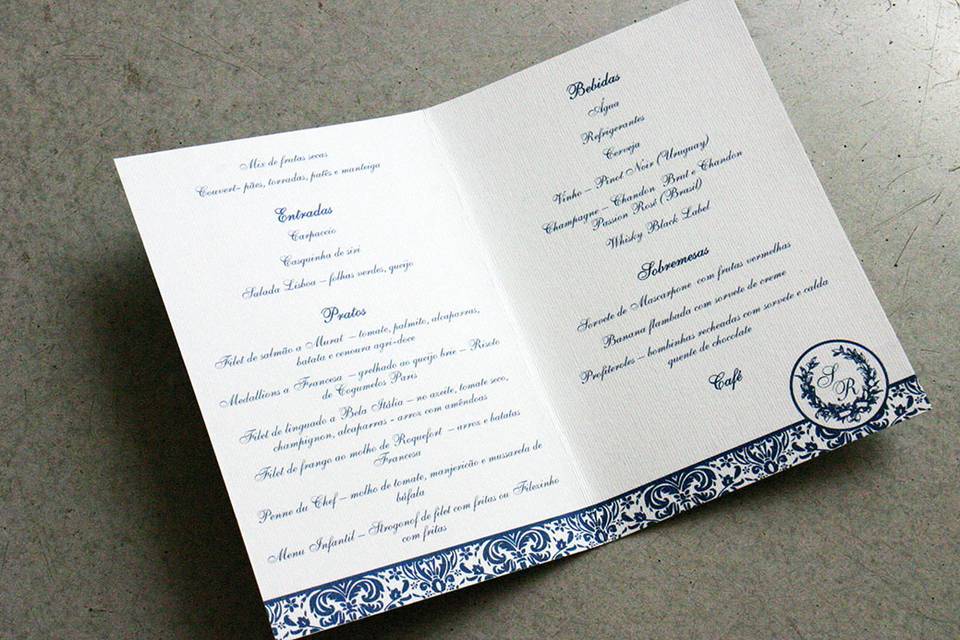 Mix de frutas secas
Couvert- pães, torradas, patês e manteiga
Entradas
Carpaccio
Casquinha de siri
Salada Lisboa – folhas verdes, queijo
Pratos
Filet de salmão a Murat – tomate, palmito, alcaparras,
batata e cenoura agri-doce
Medallions a Francesa – grelhado ao queijo brie – Risoto
de Cogumelos Paris
Filet de linguado a Bela Itália – no azeite, tomate seco,
champignon, alcaparras - arroz com amêndoas
Filet de frango ao molho de Roquefort – arroz e batatas
Francesa
Penne du Chef – molho de tomate, manjericão e mussarela de
búfala
Menu Infantil – Strogonof de filet com fritas ou Filezinho
com fritas
Bebidas
Água
Refrigerantes
Cerveja
Vinho – Pinot Noir (Uruguay)
Champagne – Chandon Brut e Chandon
Passion Rosé (Brasil)
Whisky Black Label
Sobremesas
Sorvete de Mascarpone com frutas vermelhas
Banana flambada com sorvete de creme
Profiteroles – bombinhas recheadas com sorvete e calda
quente de chocolate
Café
S R